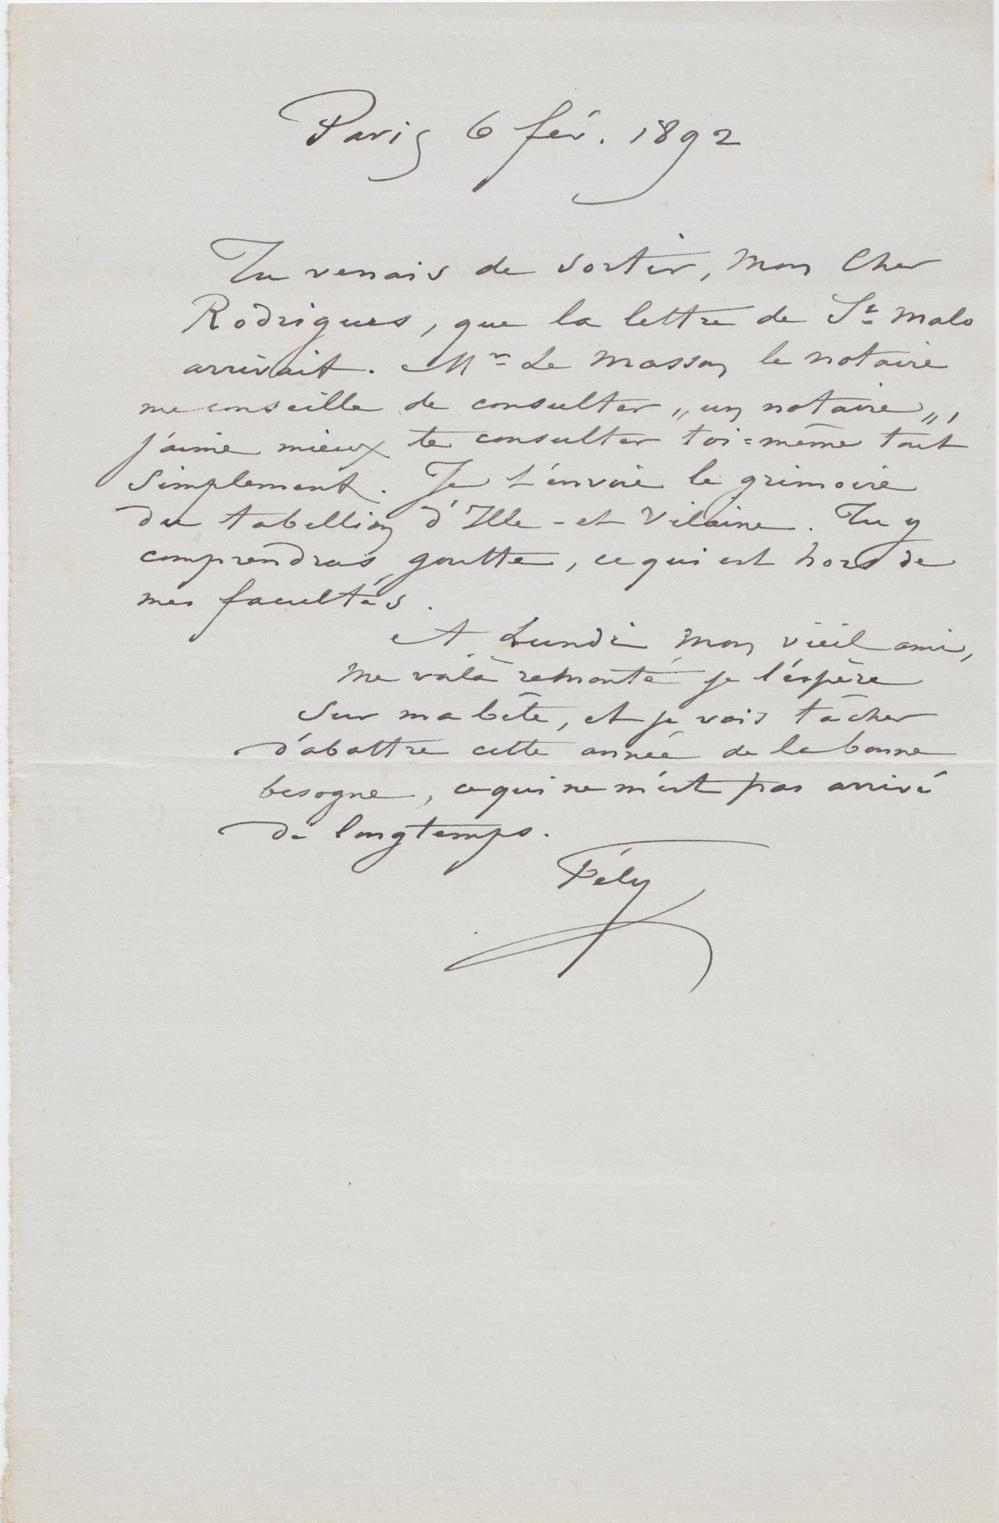 Paris 6 fév. 1892
Tu venais de sortir, Mon Cher
Rodrigues, que la lettre de St Malo
arrivait. Mr Le Masson le notaire
me conseille de consulter „un notaire„,
j'aime mieux te consulter toi=même tout
simplement. Je t'envoie le grimoire
du tabellion d'Ille-et Vilaine. Tu y
comprendras goutte, ce qui est hors de
mes facultés.
A Lundi Mon vieil ami,
me voilà remonté je l'éspère
sur ma bête, et je vais tâcher
d'abattre cette année de la bonne
besogne, ce qui ne m'est pas arrivé
de longtemps.
Fély